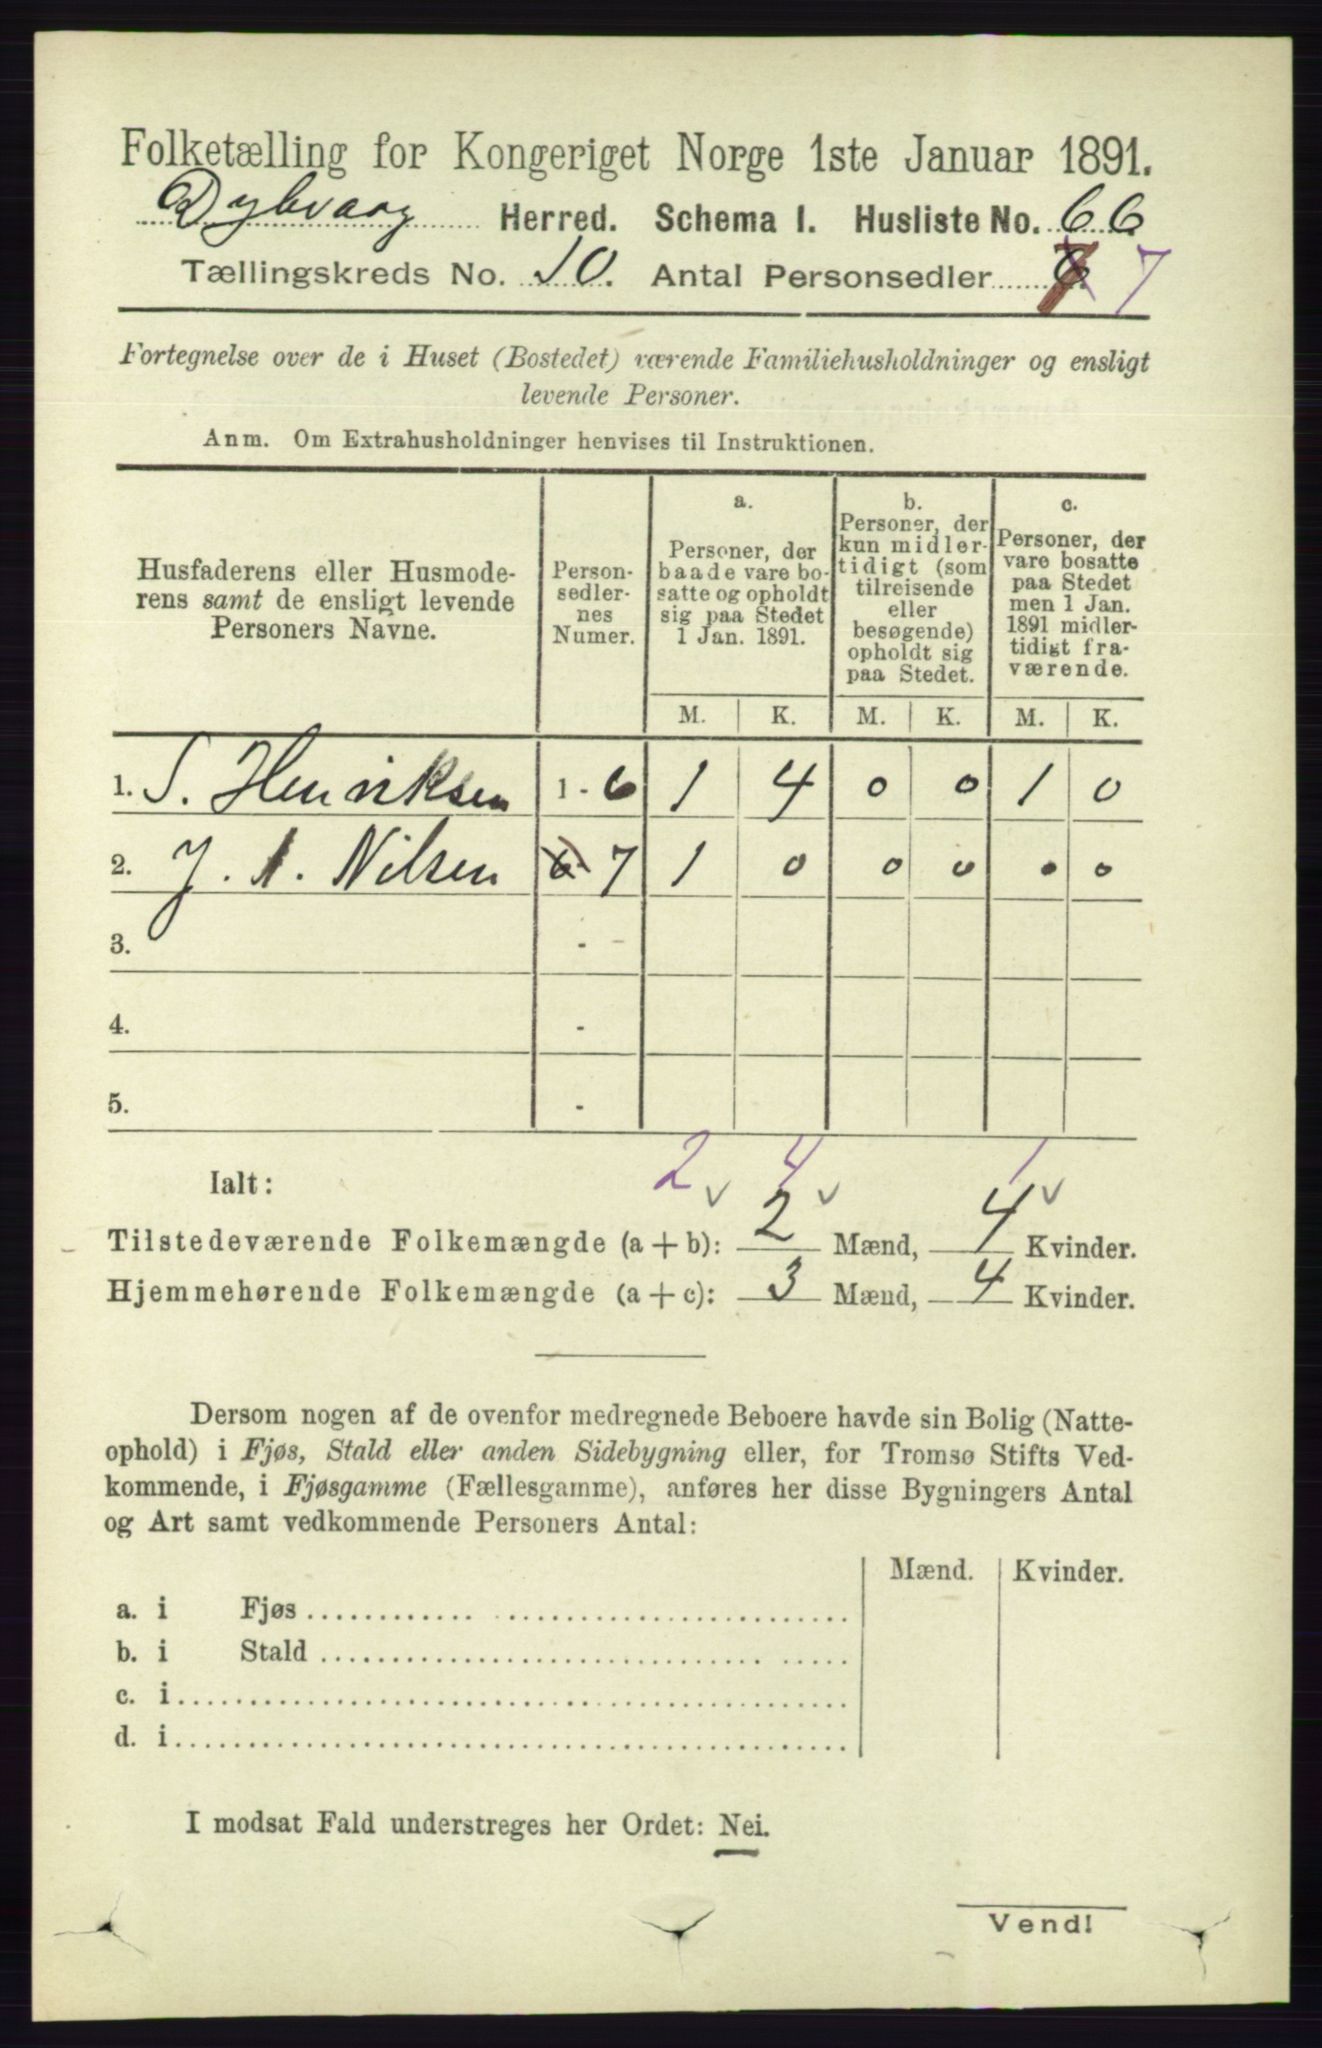 Folketælling for Kongeriget Norge 1ste Januar 1891.
Dybvaag Herred. Schema I. Husliste No. 66
Tællingskreds No. 10. Antal Personsedler 7
Fortegnelse over de i Huset (Bostedet) værende Familiehusholdninger og ensligt
levende Personer.
Anm. Om Extrahusholdninger henvises til Instruktionen.
Husfaderens eller Husmode-
rens samt de ensligt levende
Personers Navne.
Person-
sedler-
nes
Numer.
a.
Personer, der
baade vare bo-
satte og opholdt
sig paa Stedet
1 Jan. 1891.
b.
Personer, der
kun midler-
tidigt (som
tilreisende
eller
besøgende)
opholdt sig
paa Stedet.
c.
Personer, der
vare bosatte
paa Stedet
men 1 Jan.
1891 midler-
tidigt fra-
værende.
M. K. M. K. M. K.
1. S. Henriksen 1 - 6 1 4 0 0 1 0
2. J. A. Nilsen 7 1 0 0 0 0 0
3. -
4. -
5. -
2 4 1
Ialt:
Tilstedeværende Folkemængde (a + b): 2 Mænd, 4 Kvinder.
Hjemmehørende Folkemængde (a + c): 3 Mænd, 4 Kvinder.
Dersom nogen af de ovenfor medregnede Beboere havde sin Bolig (Natte-
ophold) i Fjøs, Stald eller anden Sidebygning eller, for Tromsø Stifts Ved-
kommende, i Fjøsgamme (Fællesgamme), anføres her disse Bygningers Antal
og Art samt vedkommende Personers Antal:
Mænd. Kvinder.
a. i Fjøs
b. i Stald
c. i
d. i
I modsat Fald understreges her Ordet: Nei.
Vend!